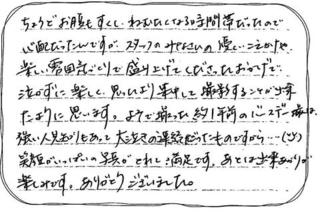 ちょうどお腹もすくし、ねむたくなる時間帯だったので
心配だったんですが、スタッフのみなさんの優しい声かけや、
楽しい雰囲気づくりで盛り上げてくださったおかげで、
泣かずに楽しく、思ったより集中して撮影することが出来
たように思います。 撮った約1年前のバースデー撮影は、
強い人見知りもあって大泣きの連続だったものですから…(笑)
笑顔がいっぱいの写真がとれて満足です。あとは出来あがりが
楽しみです。ありがとうございました。